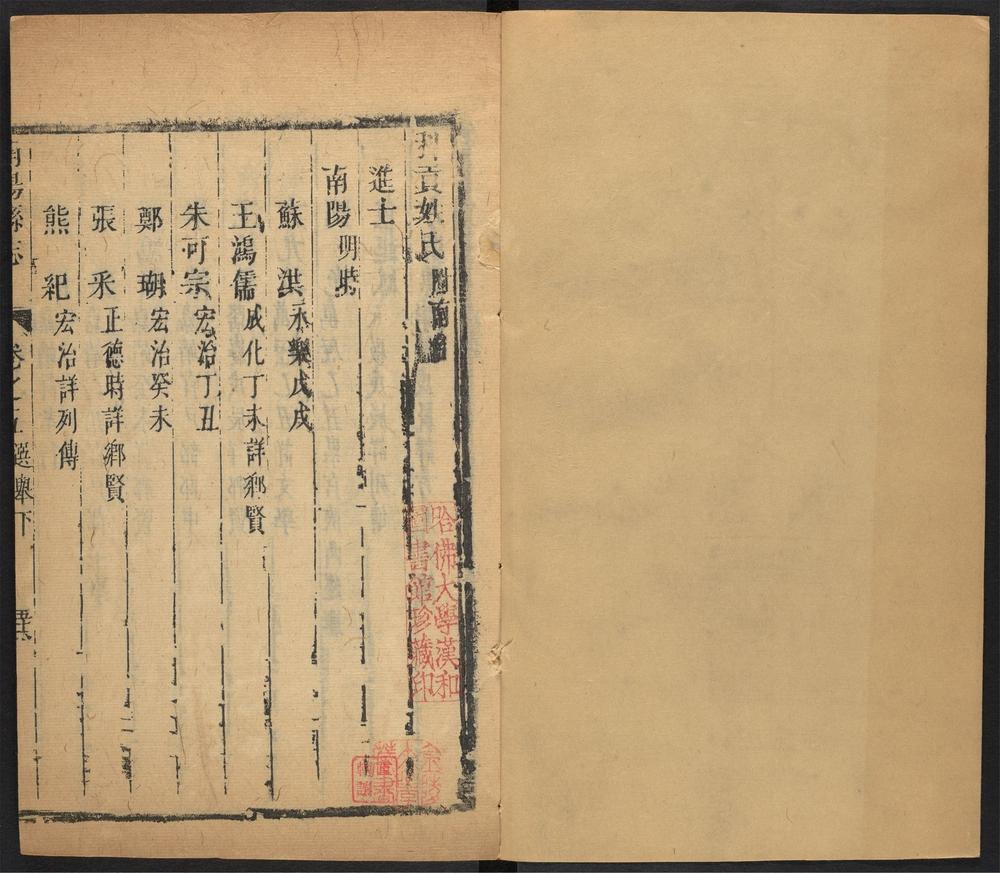 貢姓氏
進士
南陽 明時
蘇洪 永樂戊戌
王鴻儒 成化丁未詳鄉賢
朱可宗 宏治丁丑
鄭瑚 宏治癸未
張釆 正德時詳鄉賢
熊紀 宏治詳列傳
陽縣志 卷之五選舉下
哈佛大學漢和
圖書館珍藏印